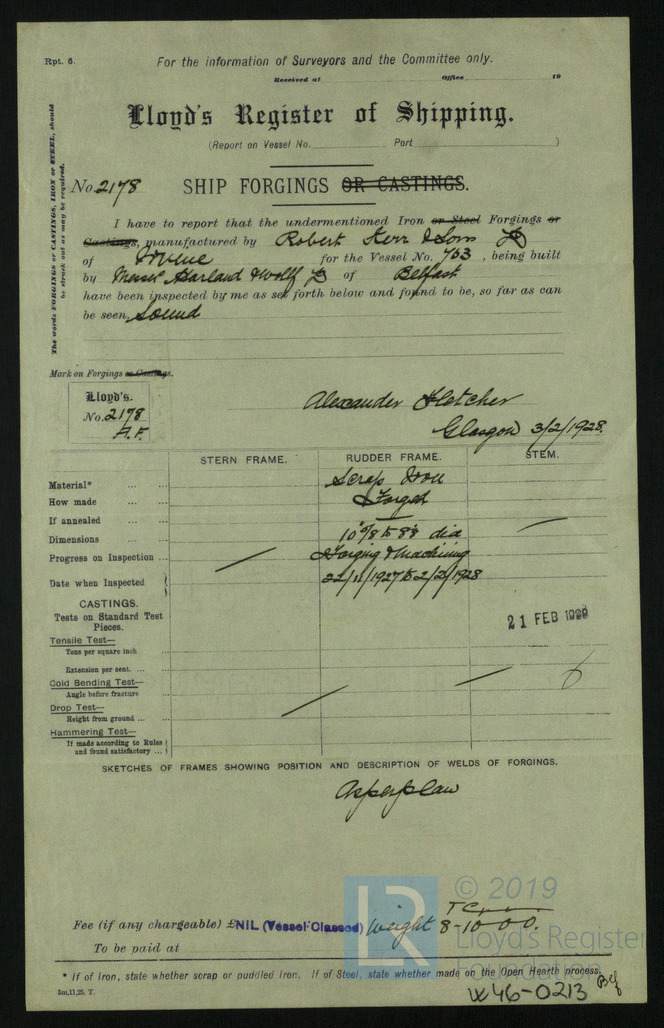 Rpt. 6.
For the information of Surveyors and the Committee only.
Received at Office 19
Lloyd's Register of Shipping.
(Report on Vessel No. Port )
The words FORGINGS or CASTINGS, IRON or STEEL, should
be struck out as may be required.
No. 2178 SHIP FORGINGS OR CASTINGS.
I have to report that the undermentioned Iron or Steel Forgings or
Castings, manufactured by Robert Kerr & Sons Ld
of Irvine for the Vessel No. 763, being built
by Messrs Harland & Wolff Ld of Belfast
have been inspected by me as set forth below and found to be, so far as can
be seen, Sound
Mark on Forgings or Castings.
Lloyd's.
No. 2178
A.F.
Alexander Fletcher
Glasgow 3/2/1928.
STERN FRAME. RUDDER FRAME. STEM.
Material* ... ... Scrap Iron
How made ... ... Forged
If annealed ... ... —
Dimensions ... ... dia
Progress on Inspection ... Forging & Machining
Date when Inspected 22/11/1927 to 2/2/1928
CASTINGS.
Tests on Standard Test
Pieces.
21 FEB 1928
Tensile Test—
Tons per square inch ...
Extension per cent. ... ...
Cold Bending Test—
Angle before fracture ...
Drop Test—
Height from ground ... ...
Hammering Test—
If made according to Rules
and found satisfactory ...
SKETCHES OF FRAMES SHOWING POSITION AND DESCRIPTION OF WELDS OF FORGINGS.
As per plan
© 2019
LR
Lloyd's Register
Foundation
Fee (if any chargeable) £ NIL (Vessel Classed) Weight 8-10-0-0.
To be paid at
* If of Iron, state whether scrap or puddled Iron. If of Steel, state whether made on the Open Hearth process.
2m,11,25, T.
W46-0213 Bef